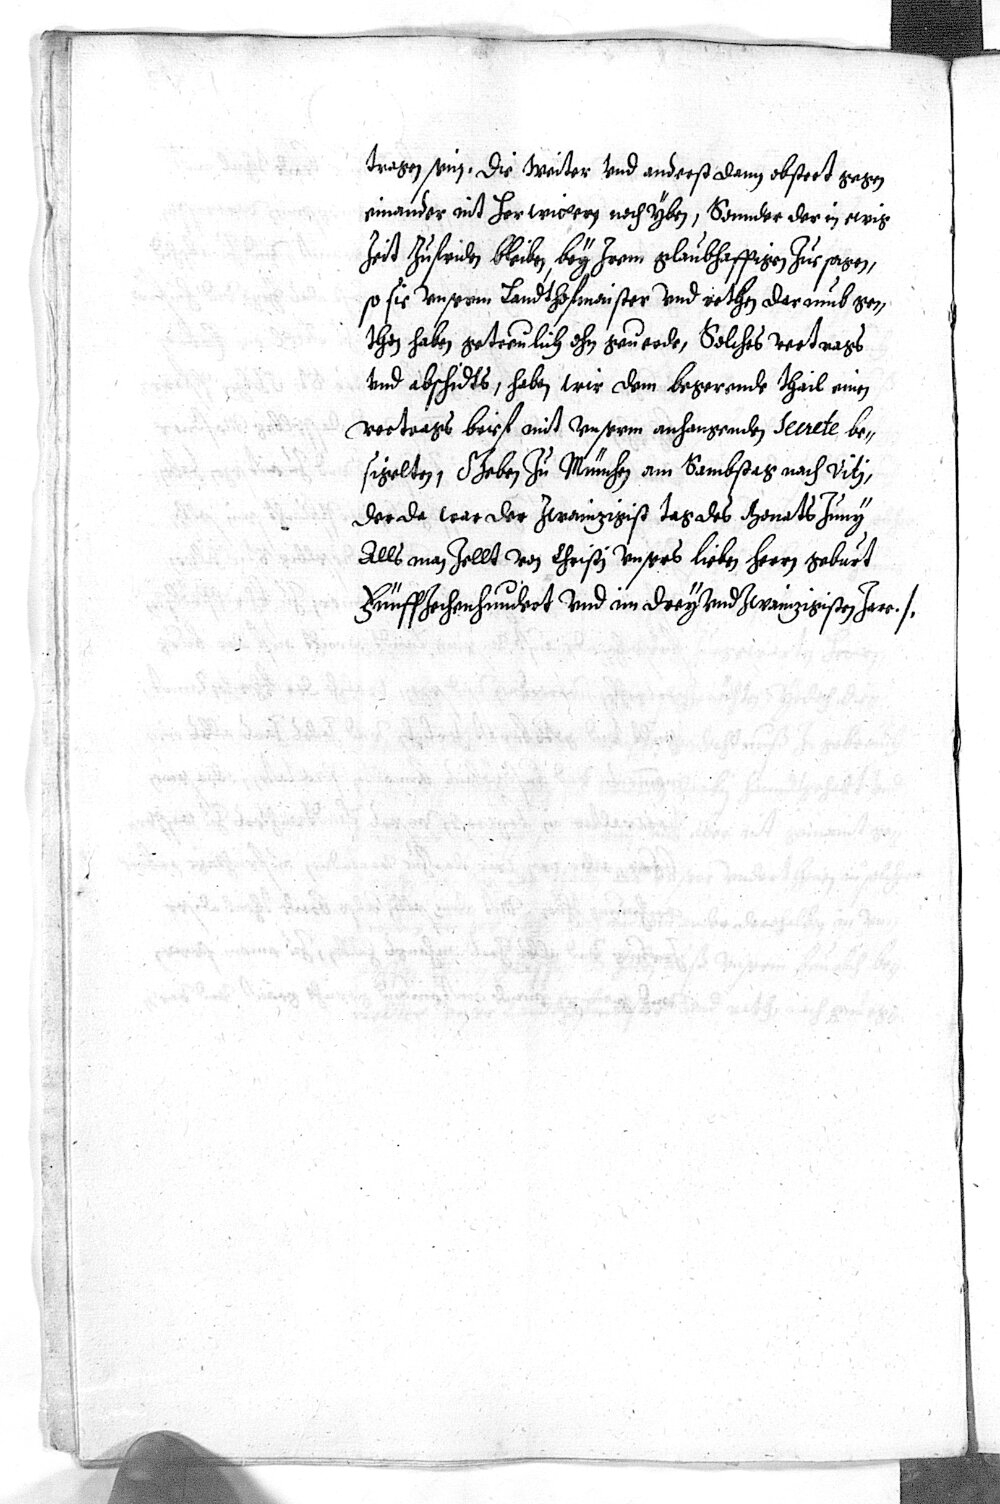 tragen sein. Die weiter vnd anderst dann obsteet gegen
einander nit herwidern noch yben, Sonnder der in ewig
Zeit Zufriden bleiben, bey Irem glaubhafftigen Zuesagen,
so sie vnserm Landthofmaister vnd rethen darumb ge„
thon haben getreulich ohn geuerde, Solches vertrags
vnd abschidts, haben wir dem begerende thail einen
vertrags brief mit vnserm anhangenden Secrete be„
sigelten, Geben Zu München am Sambstag nach Viti,
der da war der Zwainzigist tag des Monats Juny
Alls man Zellt von Christi vnsers lieben herrn geburt
Fünffzechenhundert vnd im drey vnd Zwainzigisten Jare. /.